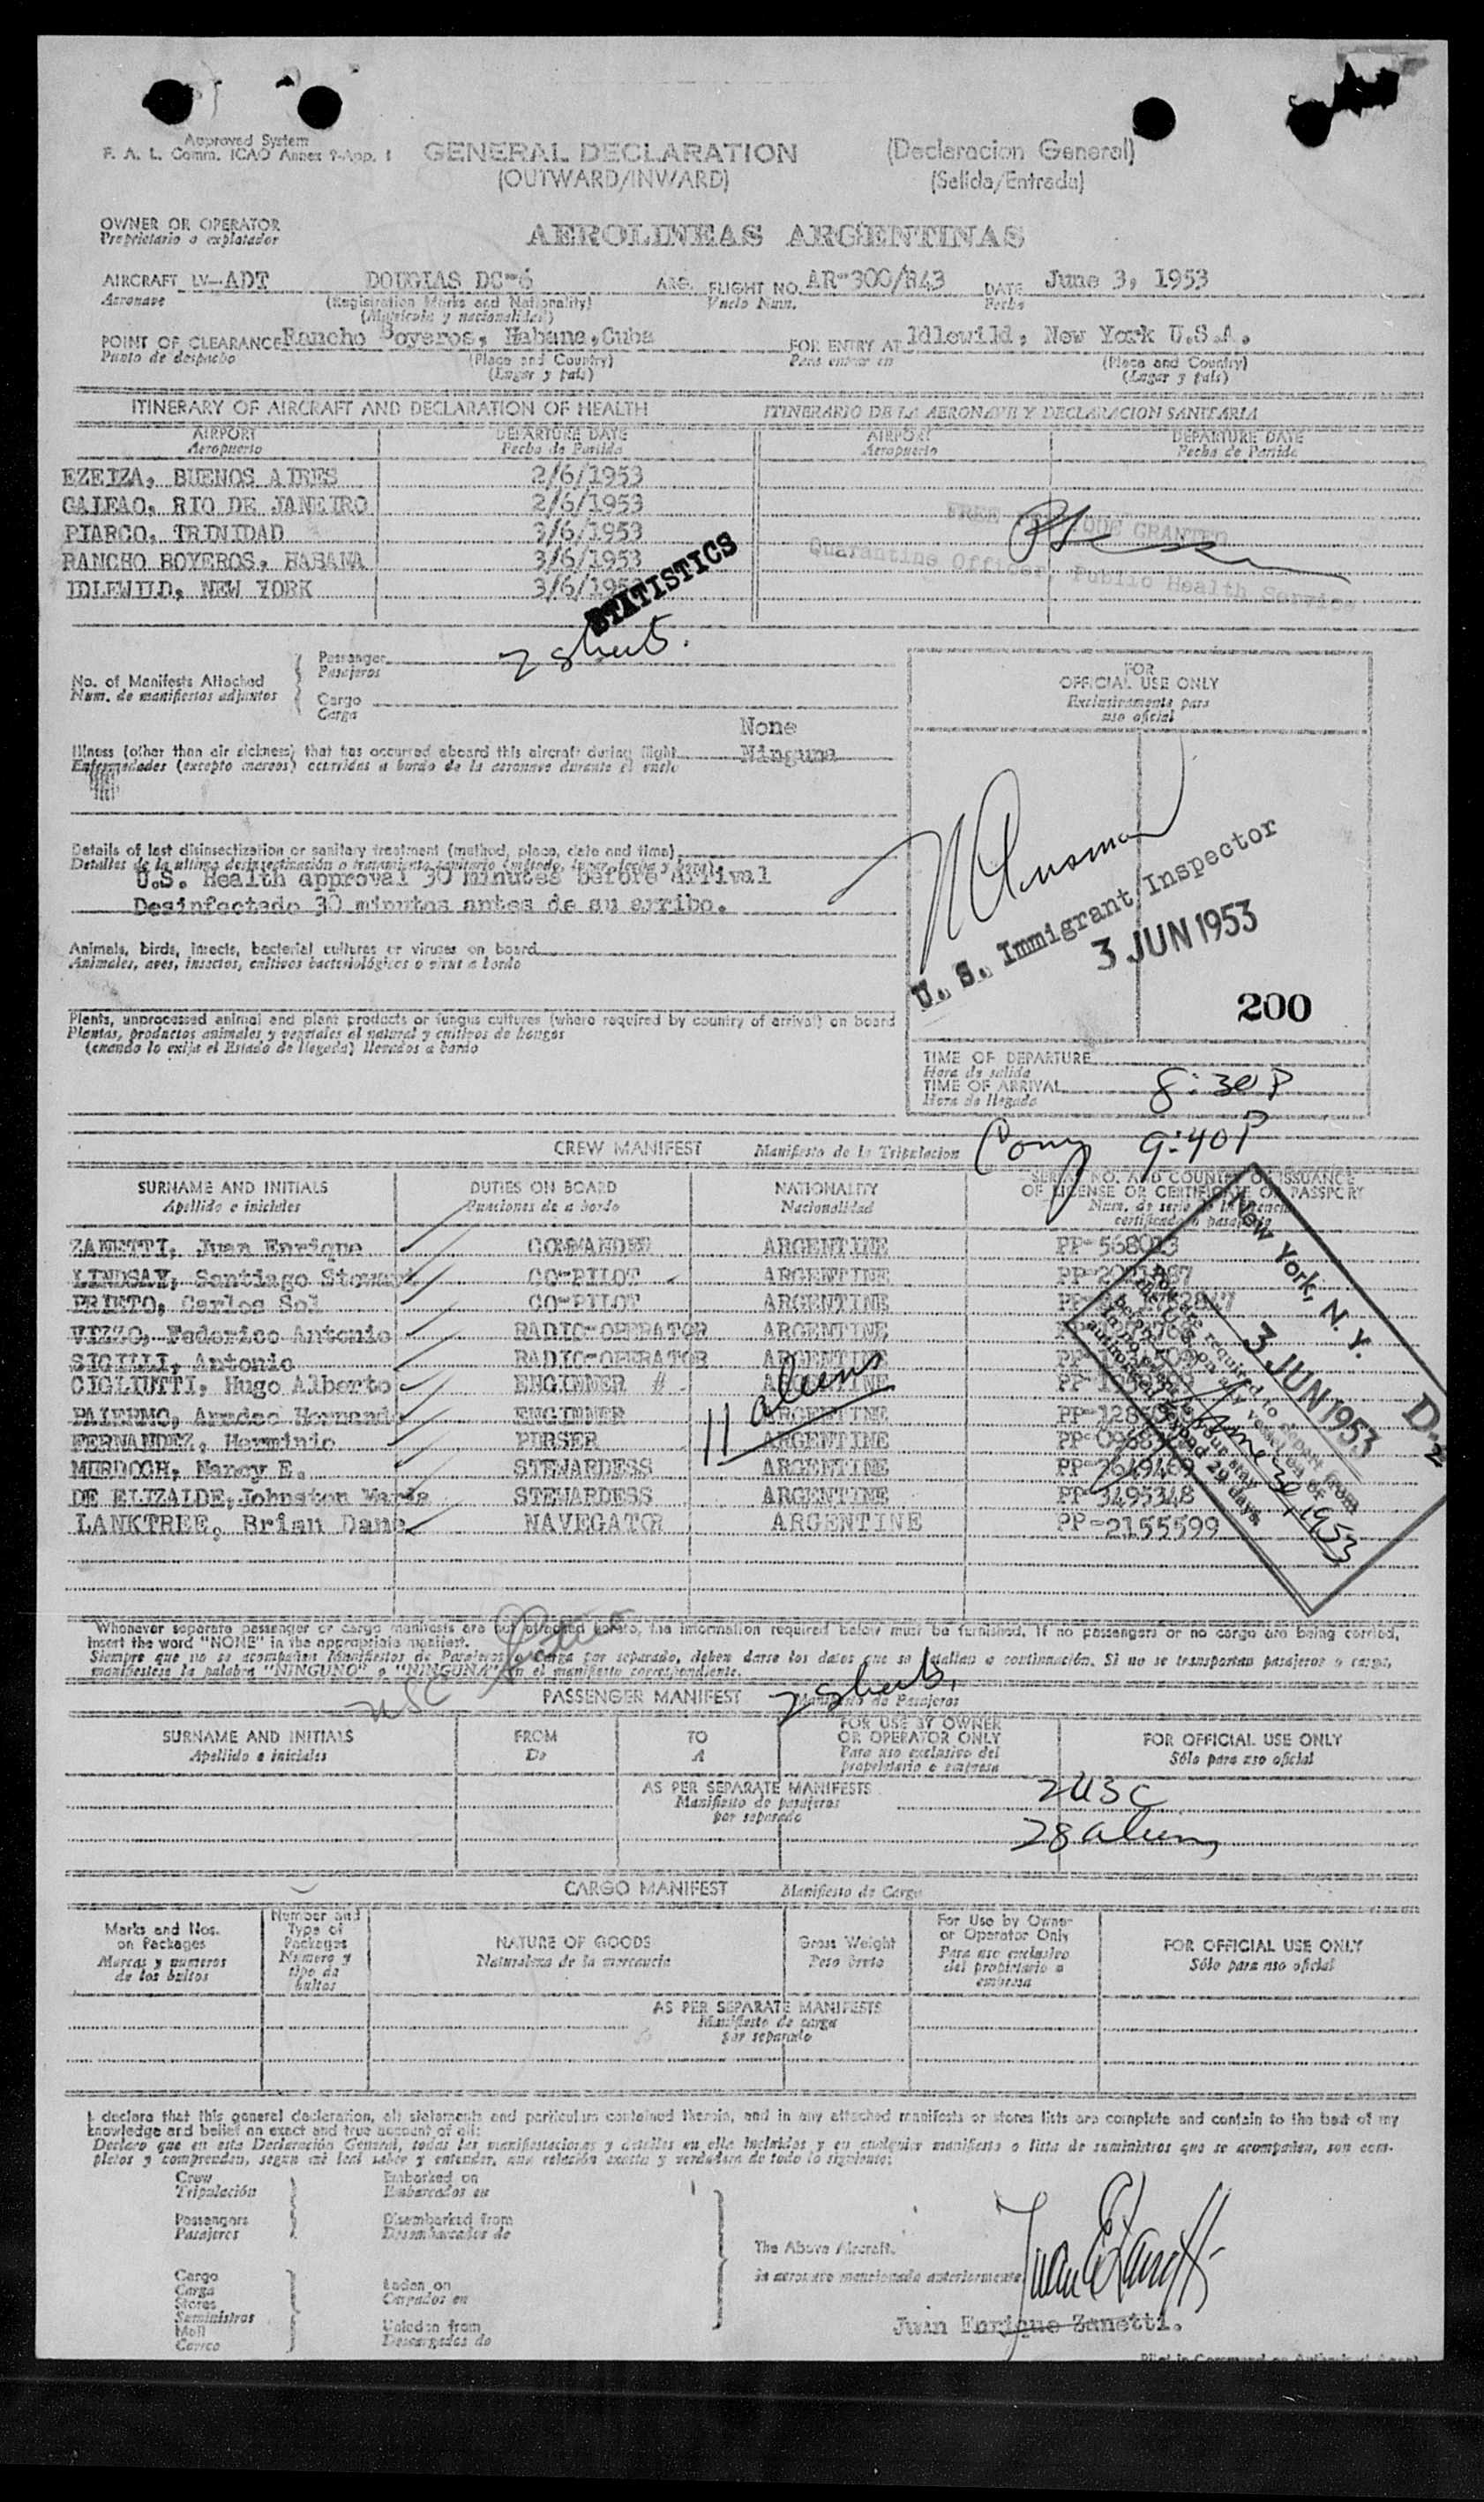 Approved System
F. A. L. Comm. ICAO Annex 9-App. 1
GENERAL DECLARATION
(Declaracion General)
(OUTWARD/INWARD)
(Salida/Entrada)
OWNER OR OPERATOR
Proprietario o explotador
AEROLINEAS ARGENTINAS
AIRCRAFT LV-ADT DOUGLAS DC-6 ARG. FLIGHT NO. AR-300/843 DATE June 3, 1953
Aeronave (Registration Marks and Nationality) Vuelo Num. Fecha
(Matricula y nacionalidad)
POINT OF CLEARANCE Rancho Boyeros, Habana, Cuba FOR ENTRY AT Idlewild, New York U.S.A.
Punto de despacho (Place and Country) Para entrar en (Place and Country)
(Lugar y país) (Lugar y país)
ITINERARY OF AIRCRAFT AND DECLARATION OF HEALTH ITINERARIO DE LA AERONAVE Y DECLARACION SANITARIA
AIRPORT DEPARTURE DATE AIRPORT DEPARTURE DATE
Aeropuerto Fecha de Partida Aeropuerto Fecha de Partida
EZEIZA, BUENOS AIRES 2/6/1953
GALEAO, RIO DE JANEIRO 2/6/1953
PIARCO, TRINIDAD 3/6/1953
RANCHO BOYEROS, HABANA 3/6/1953
IDLEWILD, NEW YORK 3/6/1953
STATISTICS
FREE PRATIQUE GRANTED
Quarantine Officer, Public Health Service
2 sheets.
No. of Manifests Attached
Num. de manifiestos adjuntos
Passenger
Pasajeros
Cargo
Carga
FOR
OFFICIAL USE ONLY
Exclusivamente para
uso oficial
None
Illness (other than air sickness) that has occurred aboard this aircraft during flight Ninguna
Enfermedades (excepto mareos) ocurridas a bordo de la aeronave durante el vuelo
Details of last disinsectization or sanitary treatment (method, place, date and time)
Detalles de la ultima desinsectización o tratamiento sanitario (método, lugar, fecha y hora)
U.S. Health approval 30 minutes before Arrival
Desinfectado 30 minutos antes de su arribo.
U. S. Immigrant Inspector
3 JUN 1953
200
Animals, birds, insects, bacterial cultures or viruses on board
Animales, aves, insectos, cultivos bacteriológicos o virus a bordo
Plants, unprocessed animal and plant products or fungus cultures (where required by country of arrival) on board
Plantas, productos animales y vegetales al natural y cultivos de hongos
(cuando lo exija el Estado de llegada) llevados a bordo
TIME OF DEPARTURE
Hora de salida
TIME OF ARRIVAL 8:30 P
Hora de llegada
9:40 P
CREW MANIFEST Manifiesto de la Tripulacion
SURNAME AND INITIALS DUTIES ON BOARD NATIONALITY SERIAL NO. AND COUNTRY OF ISSUANCE
OF LICENSE OR CERTIFICATE OR PASSPORT
Apellido e iniciales Funciones de a bordo Nacionalidad Num. de serie de la licencia
certificado o pasaporte
ZANETTI, Juan Enrique COMMANDER ARGENTINE
LINDSAY, Santiago Stewart CO-PILOT ARGENTINE
PRIETO, Carlos Sol CO-PILOT ARGENTINE
VIZZO, Federico Antonio RADIO-OPERATOR ARGENTINE
SIGILLI, Antonio RADIO-OPERATOR ARGENTINE
CIGLIUTTI, Hugo Alberto ENGINNER ARGENTINE
PALERMO, Amadeo Hernando ENGINNER ARGENTINE
FERNANDEZ, Herminio PURSER ARGENTINE
MURDOCH, Nancy E. STEWARDESS ARGENTINE PP-2649469
DE ELIZALDE, Johnston Maria STEWARDESS ARGENTINE PP-3495348
LANKTREE, Brian Dane NAVEGATOR ARGENTINE PP-2155599
11 aliens
New York, N. Y.
3 JUN 1953
You are required to depart from
the U. S. on any vessel on or
before June 30, 1953
in no event is your stay
authorized beyond 29 days.
Whenever separate passenger or cargo manifests are not attached hereto, the information required below must be furnished. If no passengers or no cargo are being carried,
insert the word "NONE" in the appropriate manifest.
Siempre que no se acompañen Manifiestos de Pasajeros o Carga por separado, deben darse los datos que se detallan a continuación. Si no se transportan pasajeros o carga,
manifiestese la palabra "NINGUNO" o "NINGUNA" en el manifiesto correspondiente.
USC
PASSENGER MANIFEST 2 sheets, Manifiesto de Pasajeros
SURNAME AND INITIALS FROM TO FOR USE BY OWNER
OR OPERATOR ONLY FOR OFFICIAL USE ONLY
Apellido e iniciales De A Para uso exclusivo del
propietario o empresa Sólo para uso oficial
AS PER SEPARATE MANIFESTS
Manifiesto de pasajeros
por separado
2 USC
28 aliens
CARGO MANIFEST Manifiesto de Carga
Marks and Nos.
on Packages
Marcas y numeros
de los bultos
Number and
Type of
Packages
Numero y
tipo de
bultos
NATURE OF GOODS
Naturaleza de la mercancia
Gross Weight
Peso bruto
For Use by Owner
or Operator Only
Para uso exclusivo
del propietario o
empresa
FOR OFFICIAL USE ONLY
Sólo para uso oficial
AS PER SEPARATE MANIFESTS
Manifiesto de carga
por separado
I declare that this general declaration, all statements and particulars contained therein, and in any attached manifests or stores lists are complete and contain to the best of my
knowledge and belief an exact and true account of all:
Declaro que en esta Declaración General, todas las manifestaciones y detalles en ella incluidos y en cualquier manifiesto o lista de suministros que se acompañen, son com-
pletos y comprenden, segun mi leal saber y entender, una relación exacta y verdadera de todo lo siguiente:
Crew
Tripulación
Passengers
Pasajeros
Embarked on
Embarcados en
Disembarked from
Desembarcados de
Cargo
Carga
Stores
Suministros
Mail
Correo
Laden on
Cargados en
Unladen from
Descargados de
The Above Aircraft.
la aeronave mencionada anteriormente
Juan E Zanetti
Juan Enrique Zanetti.